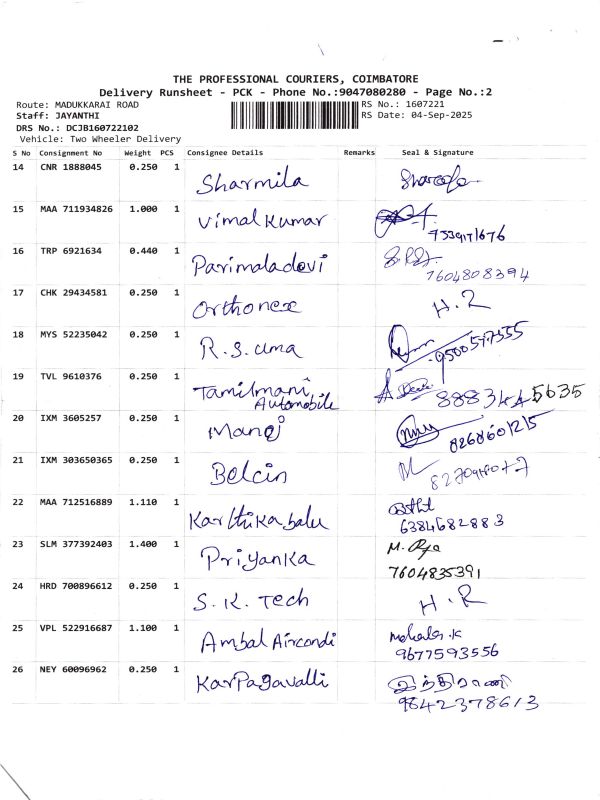 THE PROFESSIONAL COURIERS, COIMBATORE
Delivery Runsheet - PCK - Phone No.:9047080280 - Page No.:2
Route: MADUKKARAI ROAD RS No.: 1607221
Staff: JAYANTHI RS Date: 04-Sep-2025
DRS No.: DCJB160722102
Vehicle: Two Wheeler Delivery
S No Consignment No Weight PCS Consignee Details Remarks Seal & Signature
14 CNR 1888045 0.250 1 Sharmila
15 MAA 711934826 1.000 1 Vimal Kumar
7539171676
16 TRP 6921634 0.440 1 Parimaladevi
7604808394
17 CHK 29434581 0.250 1 Orthonex H.R
18 MYS 52235042 0.250 1 R.S. uma
19 TVL 9610376 0.250 1 Tamilmani
Automobile
20 IXM 3605257 0.250 1 Manoj
8268601215
21 IXM 303650365 0.250 1 Belcin
22 MAA 712516889 1.110 1 Karthikabalu
6384682883
23 SLM 377392403 1.400 1 Priyanka
7604835391
24 HRD 700896612 0.250 1 S.K. Tech H.R
25 VPL 522916687 1.100 1 Ambal Aircondi
9677593556
26 NEY 60096962 0.250 1 Karpagavalli இந்திராணி
9842378613